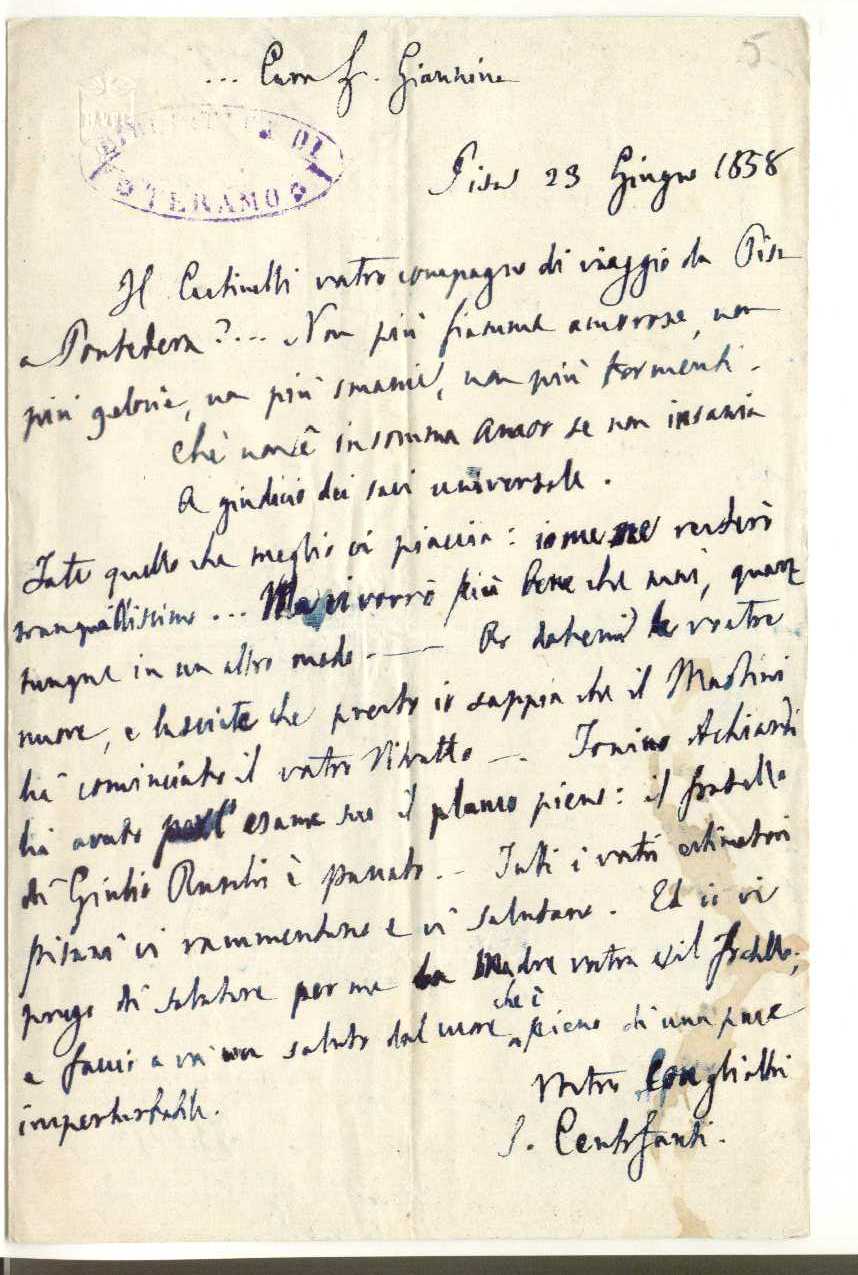 5.
... Cara F. Giannina
BATH
DI
TERAMO
Pisa 23 Giugno 1858
Il Castinelli vostro compagno di viaggio da Pisa
a Pontedera?... Non più fiamme amorose, non
più gelosie, non più smanie, non più tormenti.
Chè non è insomma Amor se non insania
A giudicio dei savi universale.
Fate quello che meglio vi piaccia: io me ne resterò
tranquillissimo... Ma vi vorrò più bene che mai, quan
tunque in un altro modo. —— Or datemi le vostre
nuove, e lasciate che presto io sappia che il
ha cominciato il vostro Ritratto —. Tonino Achiardi
ha avuto per l'esame suo il plauso pieno: il fratello
di Giulio è passato. — Tutti i vostri estimatori
pisani vi rammentano e vi salutano. Ed io vi
prego di salutare per me la Madre vostra e il fratello;
e faccio a voi un saluto dal cuore che è pieno di una pace
imperturbabile.
Vostro
S. Centofanti.